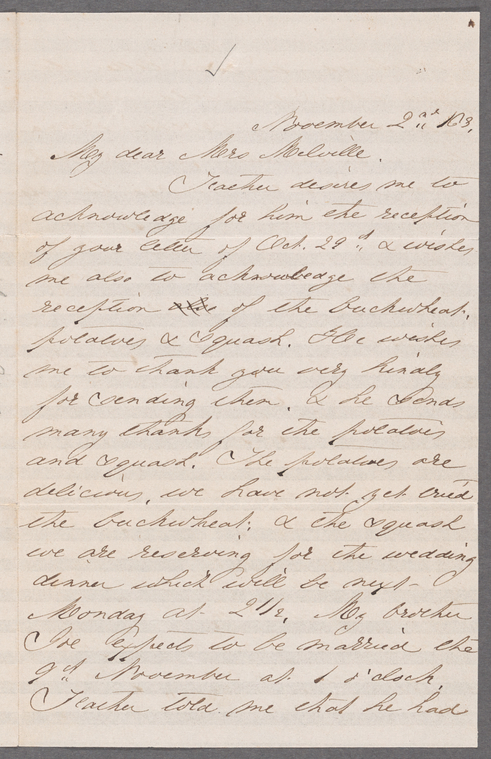 November 2nd 63.
My dear Mrs Melville.
Father desires me to
acknowledge for him the reception
of your letter of Oct. 29th & wishes
me also to acknowledge the
reception of the buckwheat,
potatoes & squash. He wishes
me to thank you very kindly
for sending them. & he sends
many thanks for the potatoes
and squash. The potatoes are
delicious, we have not yet tried
the buckwheat; & the squash
we are reserving for the wedding
dinner which will be next
Monday at 2 1/2. My brother
Joe expects to be married the
9th November at 1 o'clock,
Father told me that he had